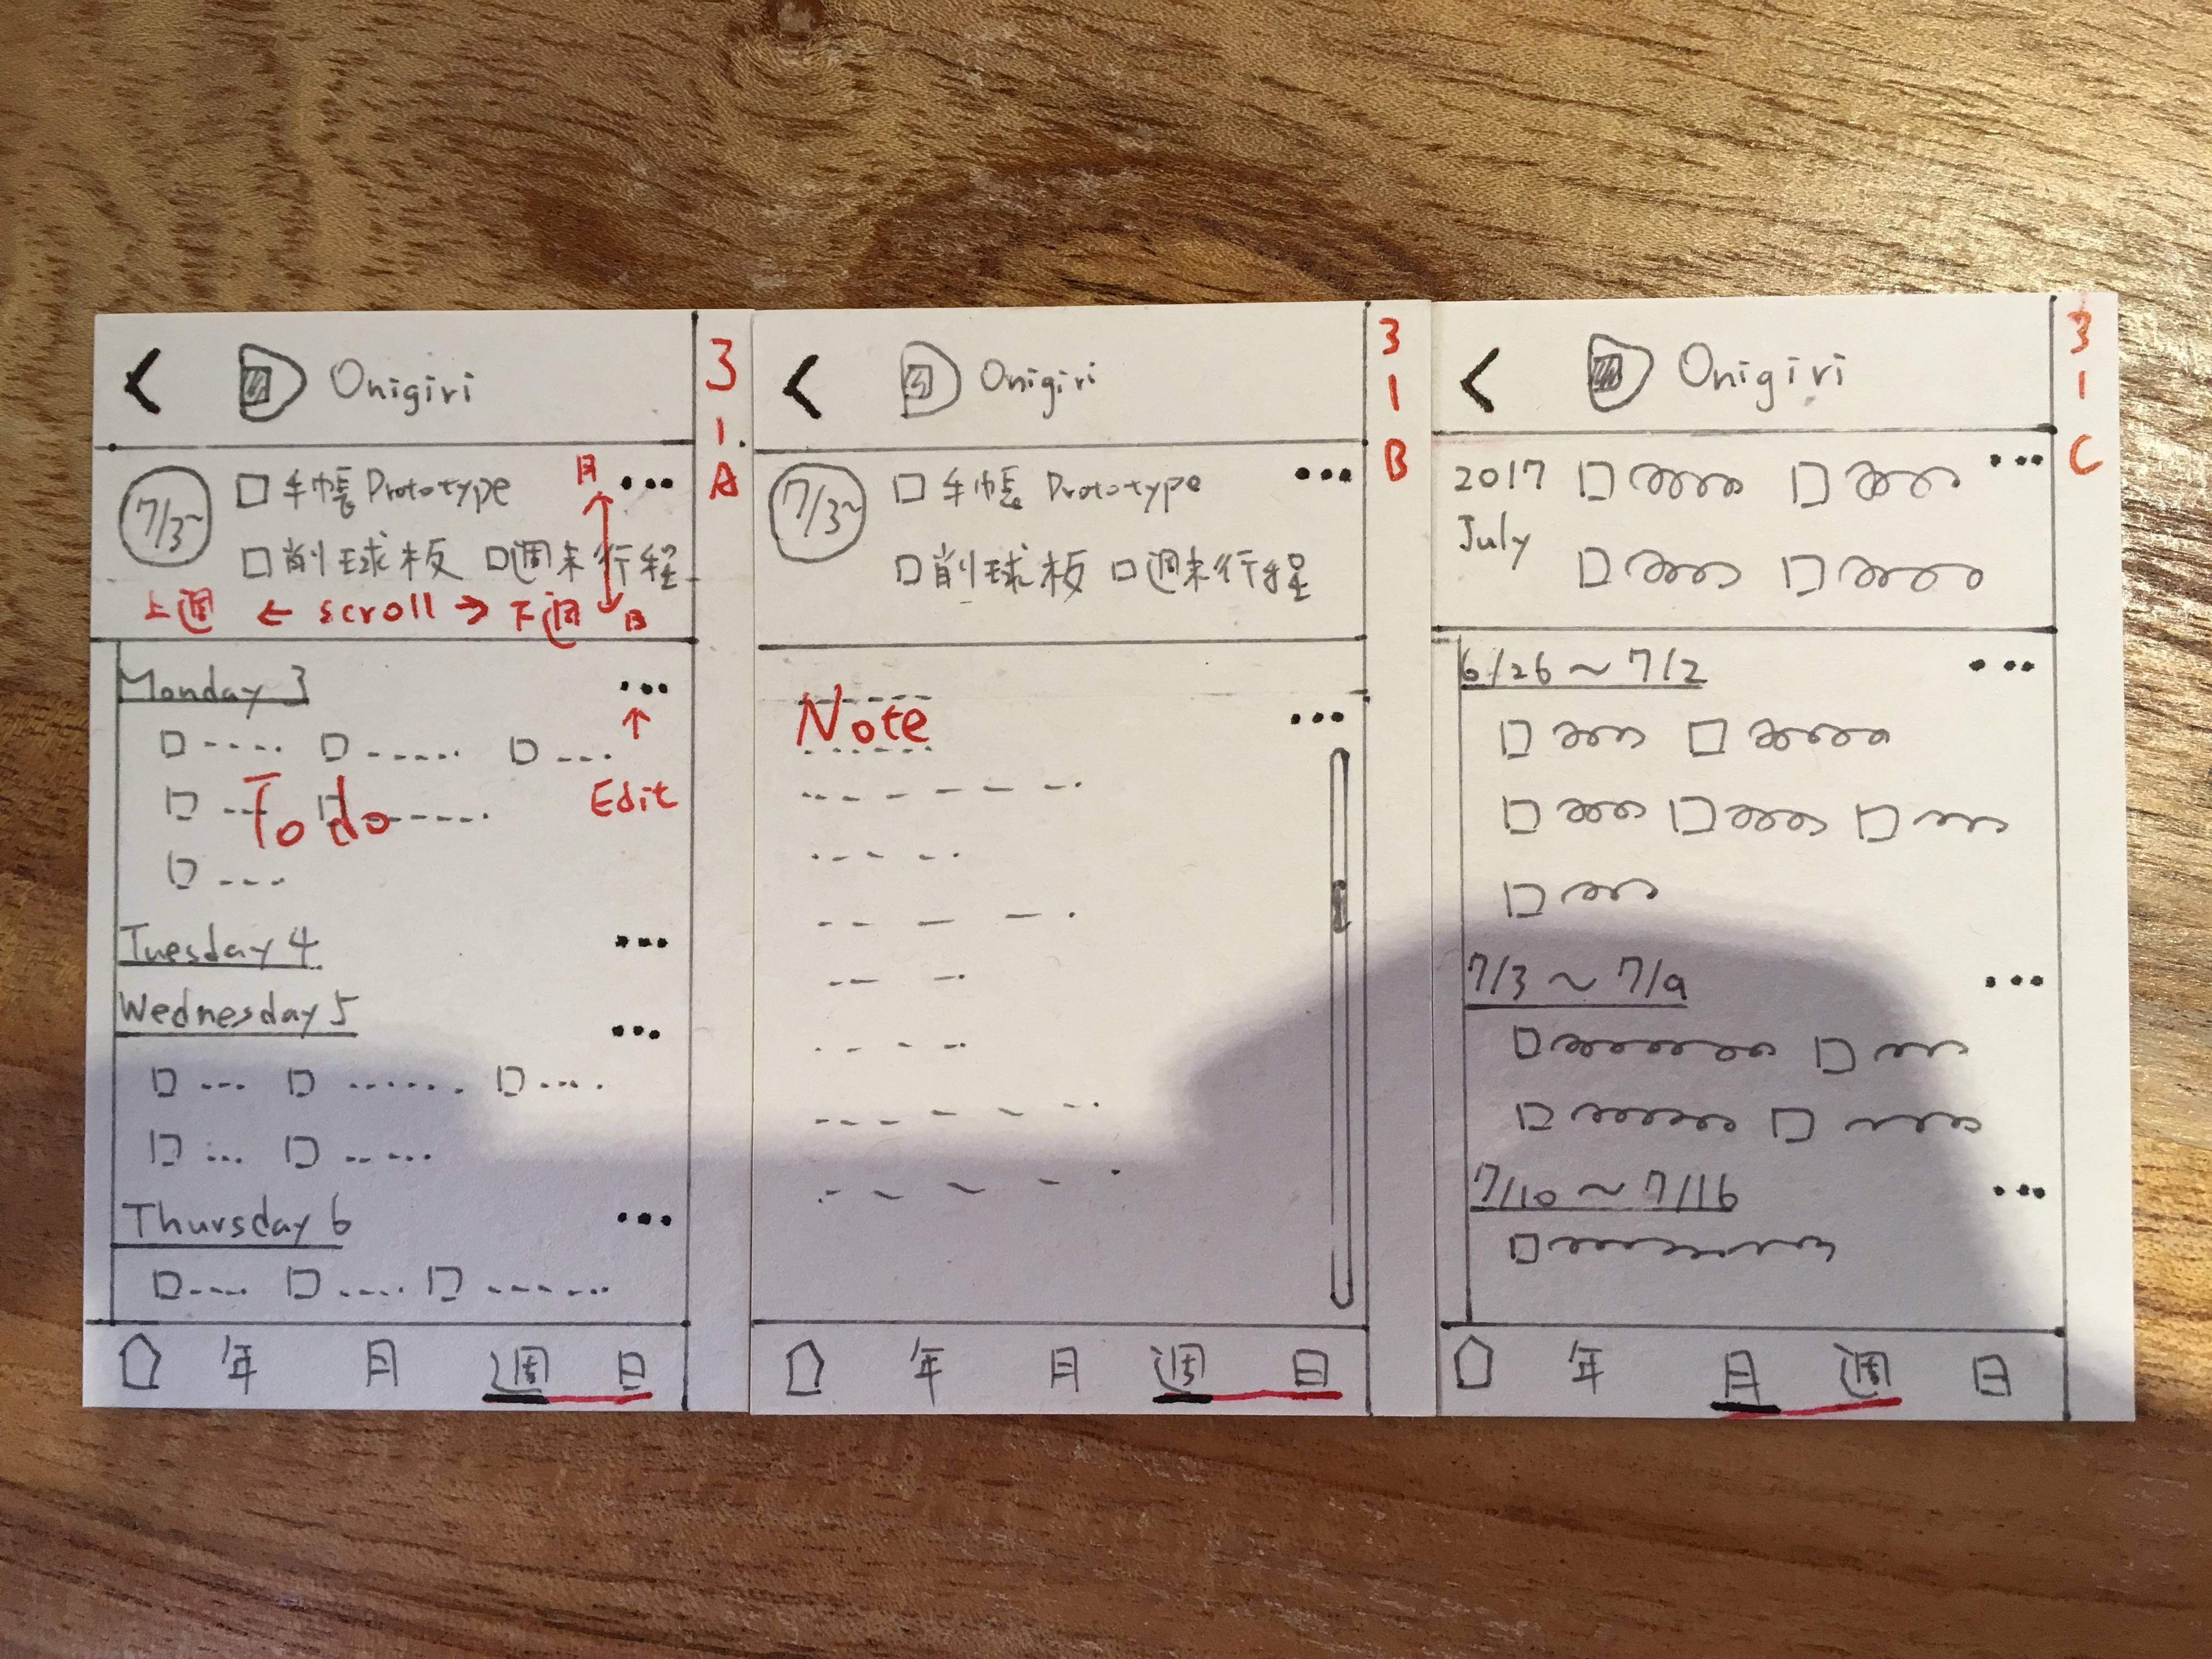 Onigiri
3
1.
A
7/3~
手帳 Prototype
月
削球板 週末行程
上週 ← scroll → 下週
日
Monday 3
To do
Edit
Tuesday 4
Wednesday 5
Thursday 6
年 月 週 日
Onigiri
3
1
B
7/3~
手帳 Prototype
削球板 週末行程
Note
年 月 週 日
Onigiri
3
1
C
2017
July
6/26 ~ 7/2
7/3 ~ 7/9
7/10 ~ 7/16
年 月 週 日